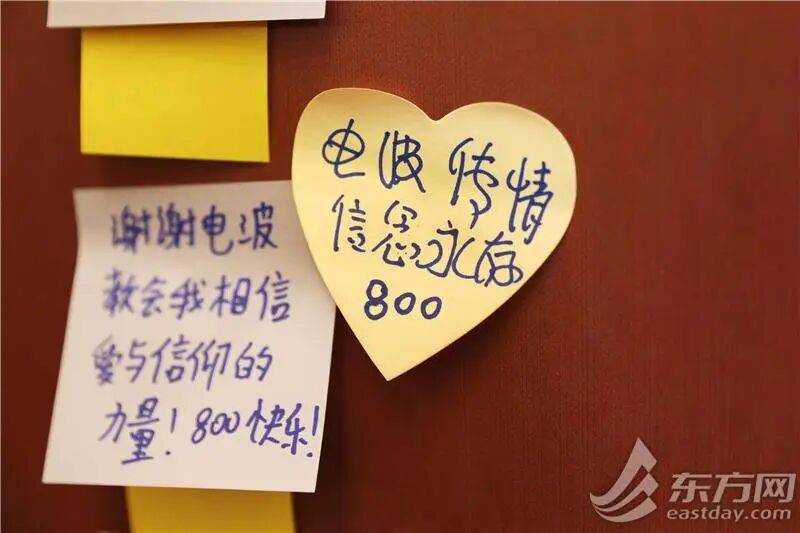 电波传情
信念永存
800
谢谢电波
教会我相信
爱与信仰的
力量！800快乐！
东方网
eastday.com